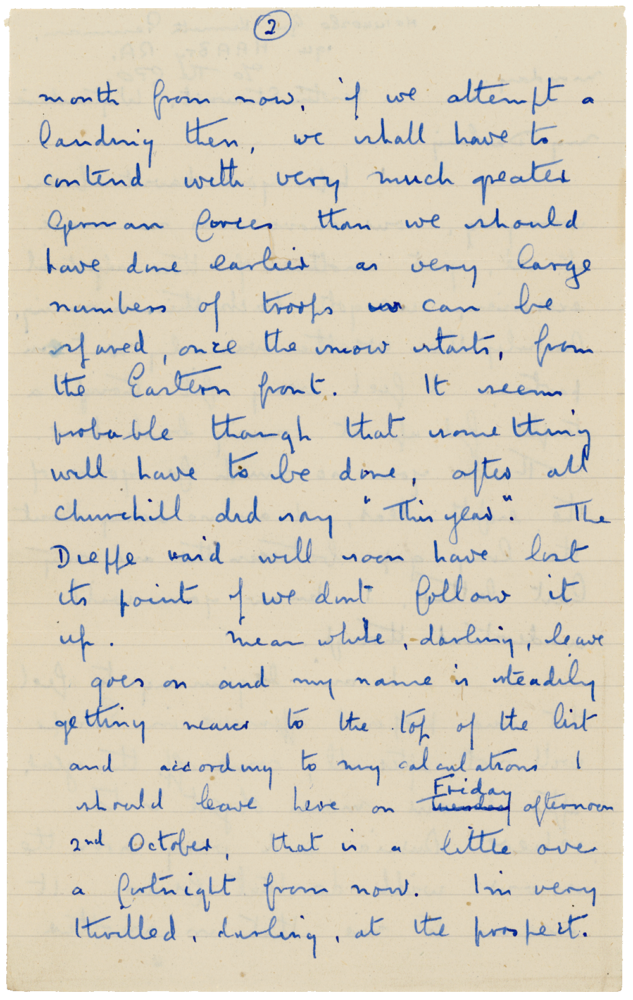 2
month from now, if we attempt a
landing then, we shall have to
contend with very much greater
German forces than we should
have done earlier as very large
numbers of troops can be
spared, once the snow starts, from
the Eastern front. It seems
probable though that something
will have to be done, after all
Churchill did say "This year". The
Dieppe raid will soon have lost
its point if we dont follow it
up. Meanwhile, darling, leave
goes on and my name is steadily
getting nearer to the top of the list
and according to my calculations I
should leave here on Friday tuesday afternoon
2nd October, that is a little over
a fortnight from now. I'm very
thrilled, darling, at the prospect.